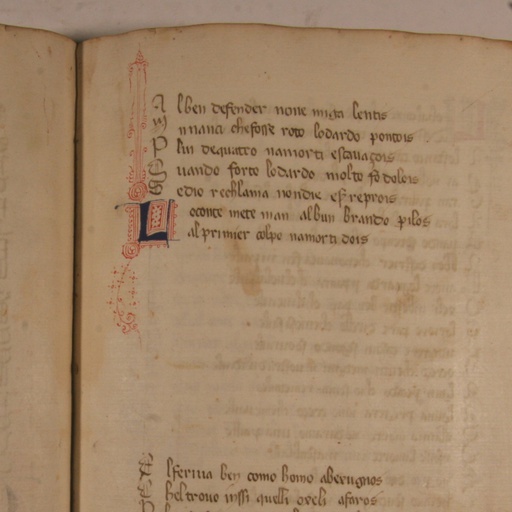 A lben defender none miga lentis
M nnanci che fosse roto lo dardo pontois
P lui de quatro na morti escavaçois
Q uando forte lo dardo molto fo dolois
E dio rechlama non die esf reprois
L o conte mete man al bun brando pilos
al primier colpo na morti dois
E l feriua ben como homo aberugnos
El trouo inssi quelli oreli afaros